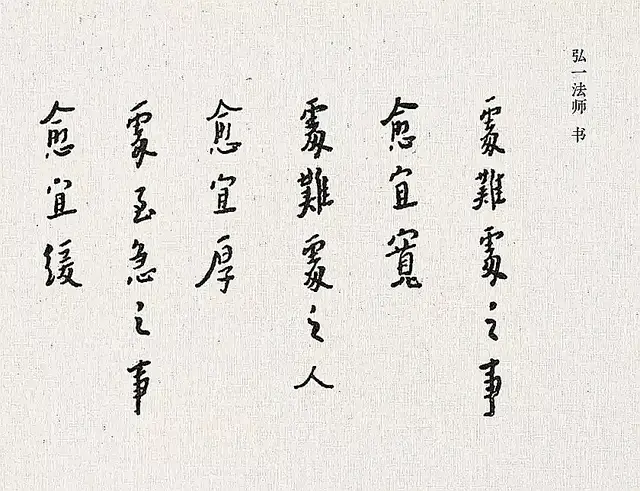 弘一法师 书
處難處之事
愈宜寬
處難處之人
愈宜厚
處至急之事
愈宜緩